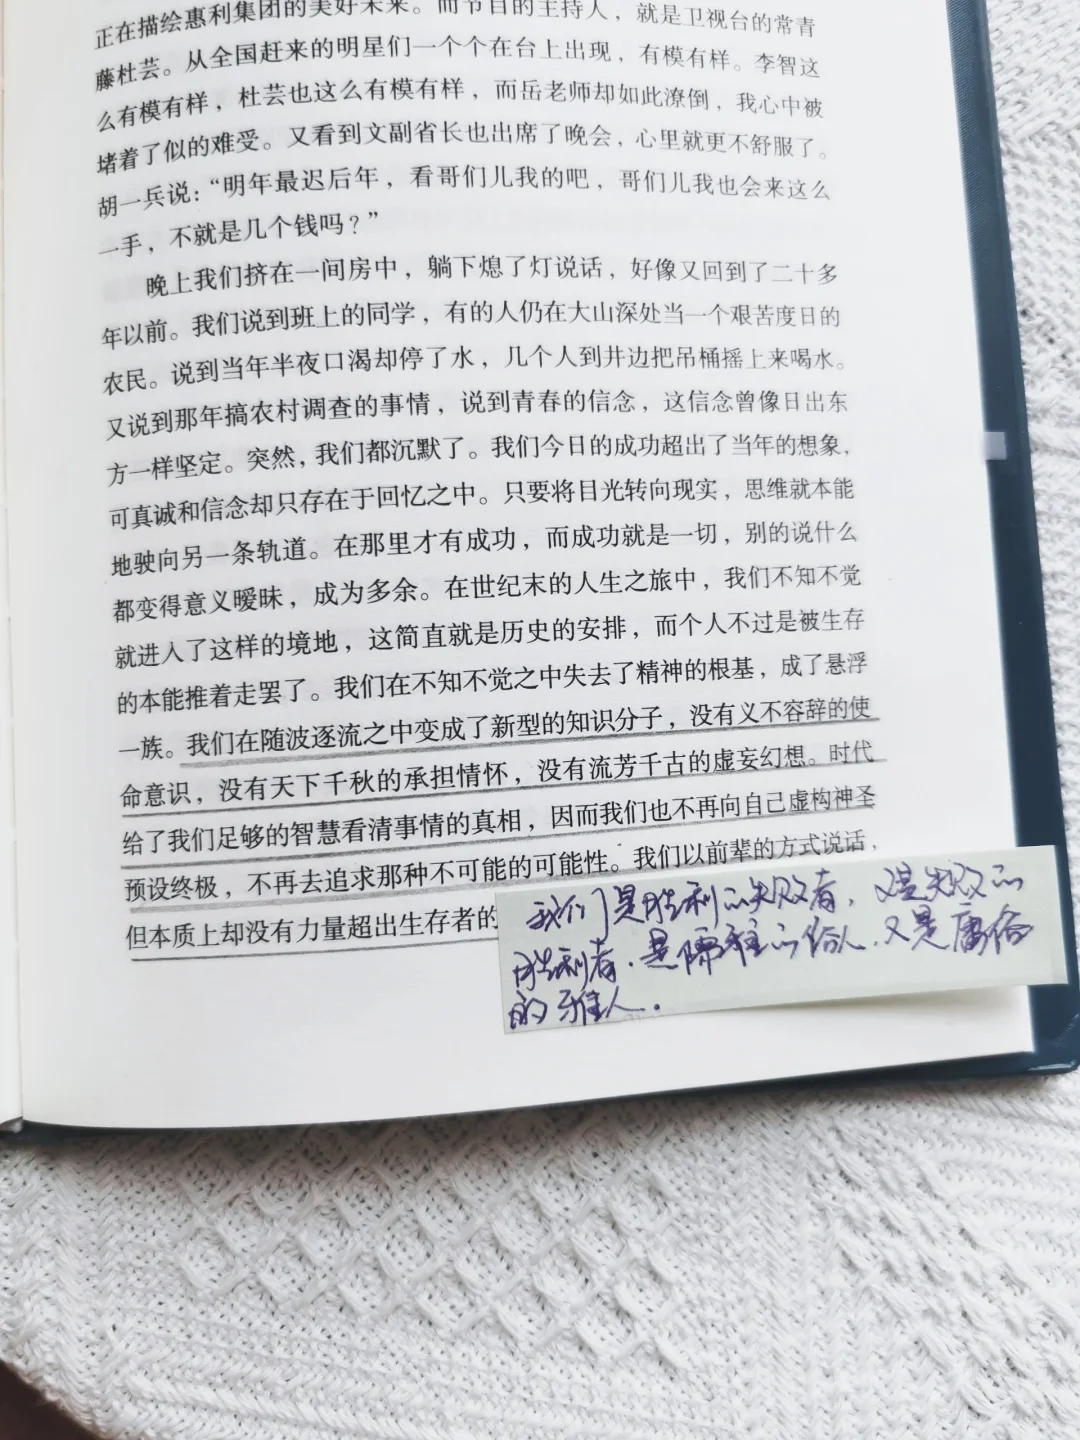 正在描绘惠利集团的美好未来。而节目的主持人，就是卫视台的常青
藤杜芸。从全国赶来的明星们一个个在台上出现，有模有样。李智这
么有模有样，杜芸也这么有模有样，而岳老师却如此潦倒，我心中被
堵着了似的难受。又看到文副省长也出席了晚会，心里就更不舒服了。
胡一兵说：“明年最迟后年，看哥们儿我的吧，哥们儿我也会来这么
一手，不就是几个钱吗？”
晚上我们挤在一间房中，躺下熄了灯说话，好像又回到了二十多
年以前。我们说到班上的同学，有的人仍在大山深处当一个艰苦度日的
农民。说到当年半夜口渴却停了水，几个人到井边把吊桶摇上来喝水。
又说到那年搞农村调查的事情，说到青春的信念，这信念曾像日出东
方一样坚定。突然，我们都沉默了。我们今日的成功超出了当年的想象，
可真诚和信念却只存在于回忆之中。只要将目光转向现实，思维就本能
地驶向另一条轨道。在那里才有成功，而成功就是一切，别的说什么
都变得意义暧昧，成为多余。在世纪末的人生之旅中，我们不知不觉
就进入了这样的境地，这简直就是历史的安排，而个人不过是被生存
的本能推着走罢了。我们在不知不觉之中失去了精神的根基，成了悬浮
一族。我们在随波逐流之中变成了新型的知识分子，没有义不容辞的使
命意识，没有天下千秋的承担情怀，没有流芳千古的虚妄幻想。时代
给了我们足够的智慧看清事情的真相，因而我们也不再向自己虚构神圣
预设终极，不再去追求那种不可能的可能性。我们以前辈的方式说话，
但本质上却没有力量超出生存者的
我们是胜利的失败者，又是失败的
胜利者．是儒雅的俗人．又是庸俗
的雅人．